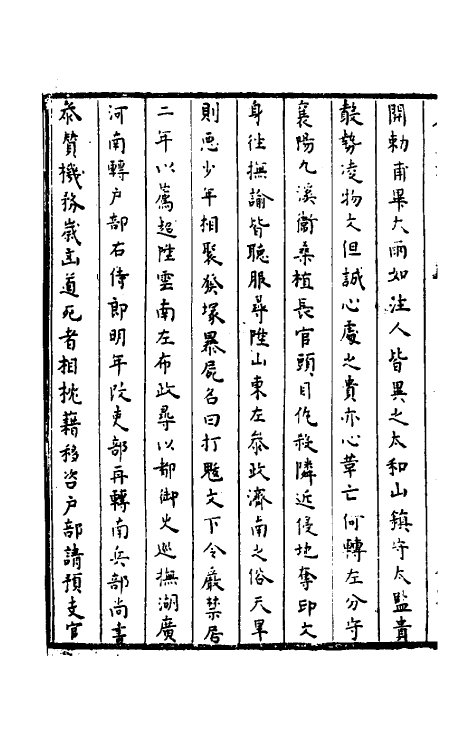 開勅甫畢大雨如注人皆異之太和山鎮守太監貴
骰勢凌物文但誠心處之貴亦心革亡何轉左分守
襄陽九溪衛桑植長官頭目仇殺隣近侵地奪印文
身往撫諭皆聽服尋陞山東左叅政濟南之俗天旱
則惡少年相聚發塚暴屍名曰打魃文下令嚴禁居
二年以薦超陞雲南左布政尋以都御史廵撫湖廣
河南轉户部右侍郎明年改吏部再轉南兵部尚書
叅贊機務歳凶道死者相枕藉移咨户部請預支官